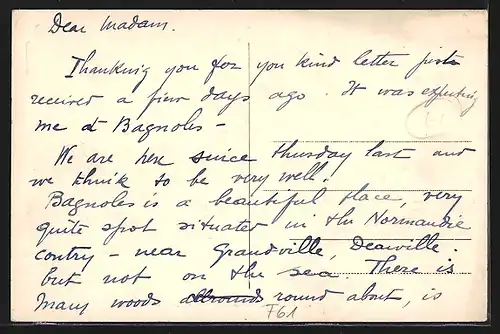 Dear Madam.
Thanking you for you kind letter just
received a few days ago. It was expecting
me at Bagnoles –
We are here since thursday last and
we think to be very well.
Bagnoles is a beautiful place, very
quite spot situated in the Normandie
contry – near Grandville, Deauville.
but not on the sea. There is
many woods allrounds round about, is
F61